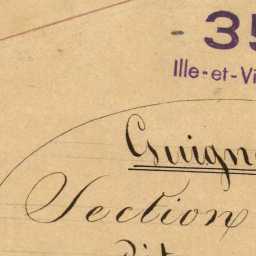 35
Ille-et-Vi
Guign
Section
Dit